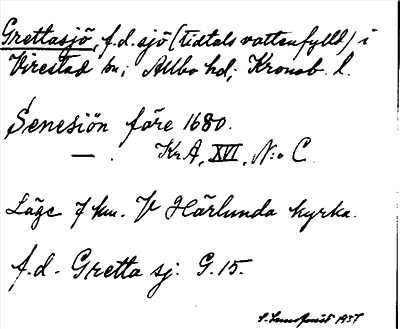 Grettasjö, f.d. sjö (tidtals vattenfylld) i
Virestad sn; Allbo hd; Kronob. l.
Senesiön före 1680.
— . KrA, XVI, N:o C.
Läge 7 km. V Härlunda kyrka.
f.d. Gretta sj. G.15.
1937